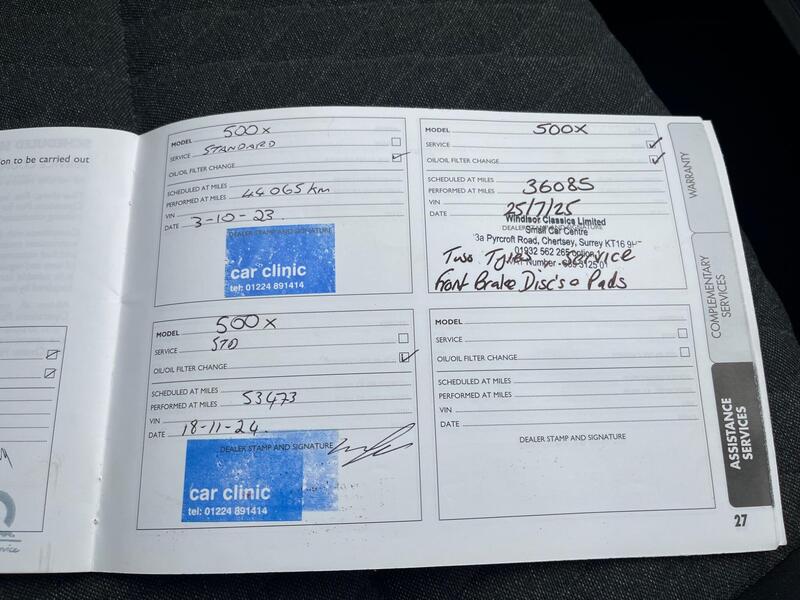 on to be carried out
MODEL 500X
SERVICE STANDARD
OIL/OIL FILTER CHANGE
SCHEDULED AT MILES
PERFORMED AT MILES 44065 km
VIN
DATE 3-10-23.
DEALER STAMP AND SIGNATURE
car clinic
tel: 01224 891414
MODEL 500X
SERVICE
OIL/OIL FILTER CHANGE
SCHEDULED AT MILES
PERFORMED AT MILES 36085
VIN
DATE 25/7/25
Windsor Classics Limited
Small Car Centre
3a Pyrcroft Road, Chertsey, Surrey KT16
01932 562 265
Two Tyres, Service
Number
3125 01
Front Brake Disc's & Pads
MODEL 500X
SERVICE STD
OIL/OIL FILTER CHANGE
SCHEDULED AT MILES
PERFORMED AT MILES 53473
VIN
DATE 18-11-24.
DEALER STAMP AND SIGNATURE
car clinic
tel: 01224 891414
MODEL
SERVICE
OIL/OIL FILTER CHANGE
SCHEDULED AT MILES
PERFORMED AT MILES
VIN
DATE
DEALER STAMP AND SIGNATURE
WARRANTY
COMPLEMENTARY
SERVICES
ASSISTANCE
SERVICES
27